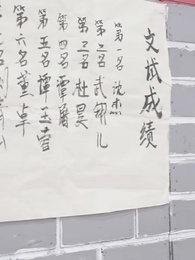 文试成绩
第一名沈杰
第二名武翱儿
第三名杜昊
第四名覃勇
第五名谭玉雪
第六名董卓